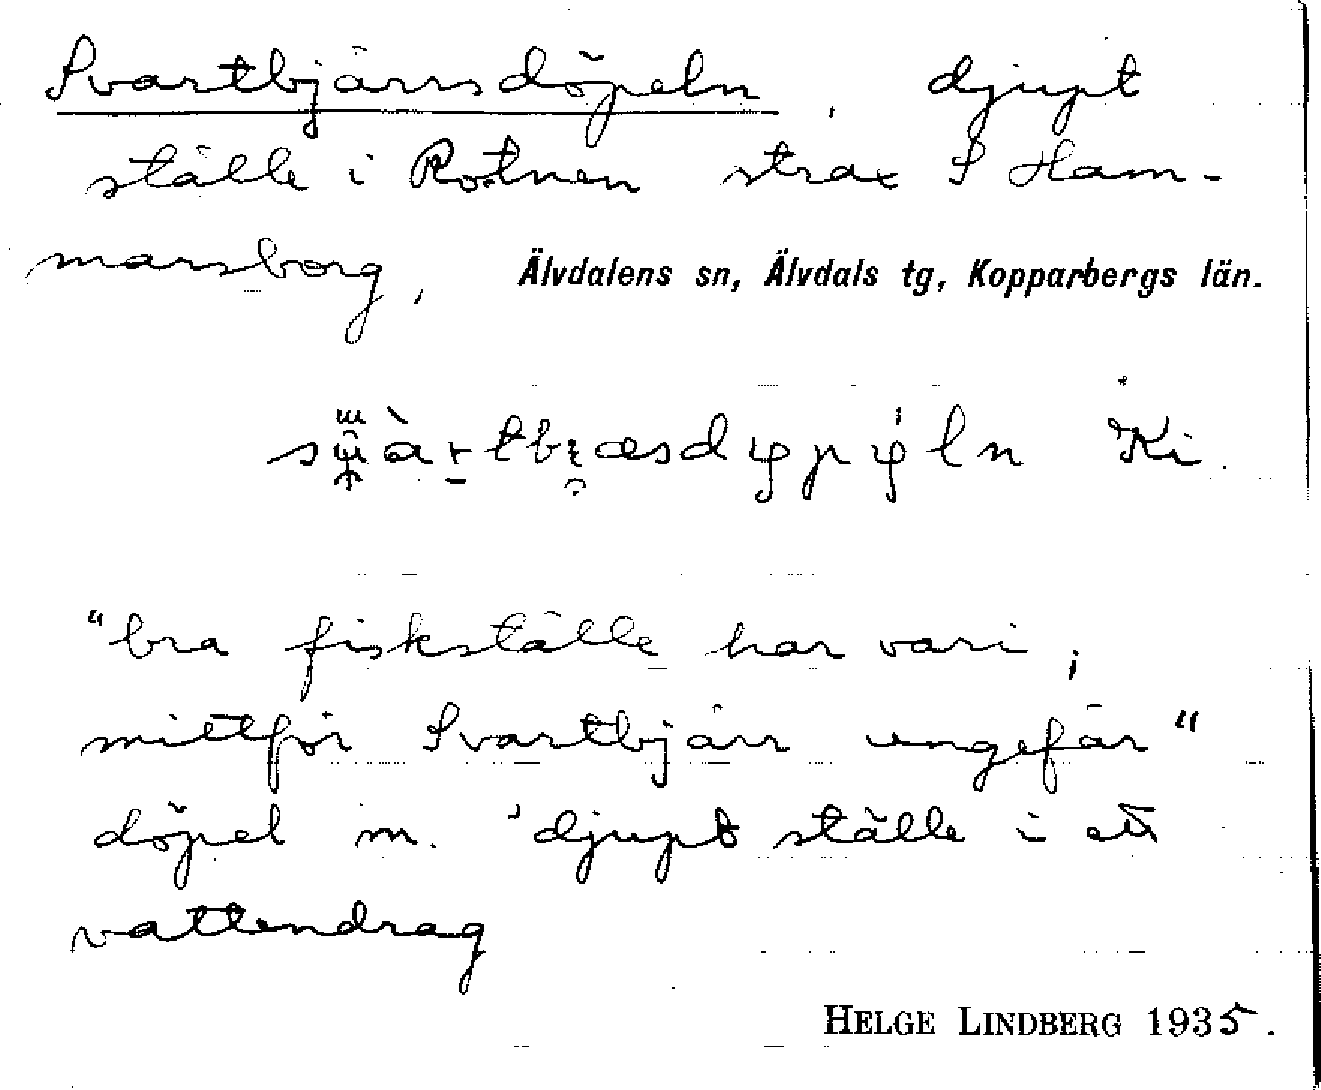 Svartbjärrsdöpeln, djupt
ställe i Rotnen strax S Ham-
marsborg, Älvdalens sn, Älvdals tg, Kopparbergs län.
Ki
"bra fiskställe har vari;
mittför Svartbjärr ungefär"
döpel m. 'djupt ställe i ett
vattendrag
HELGE LINDBERG 1935.